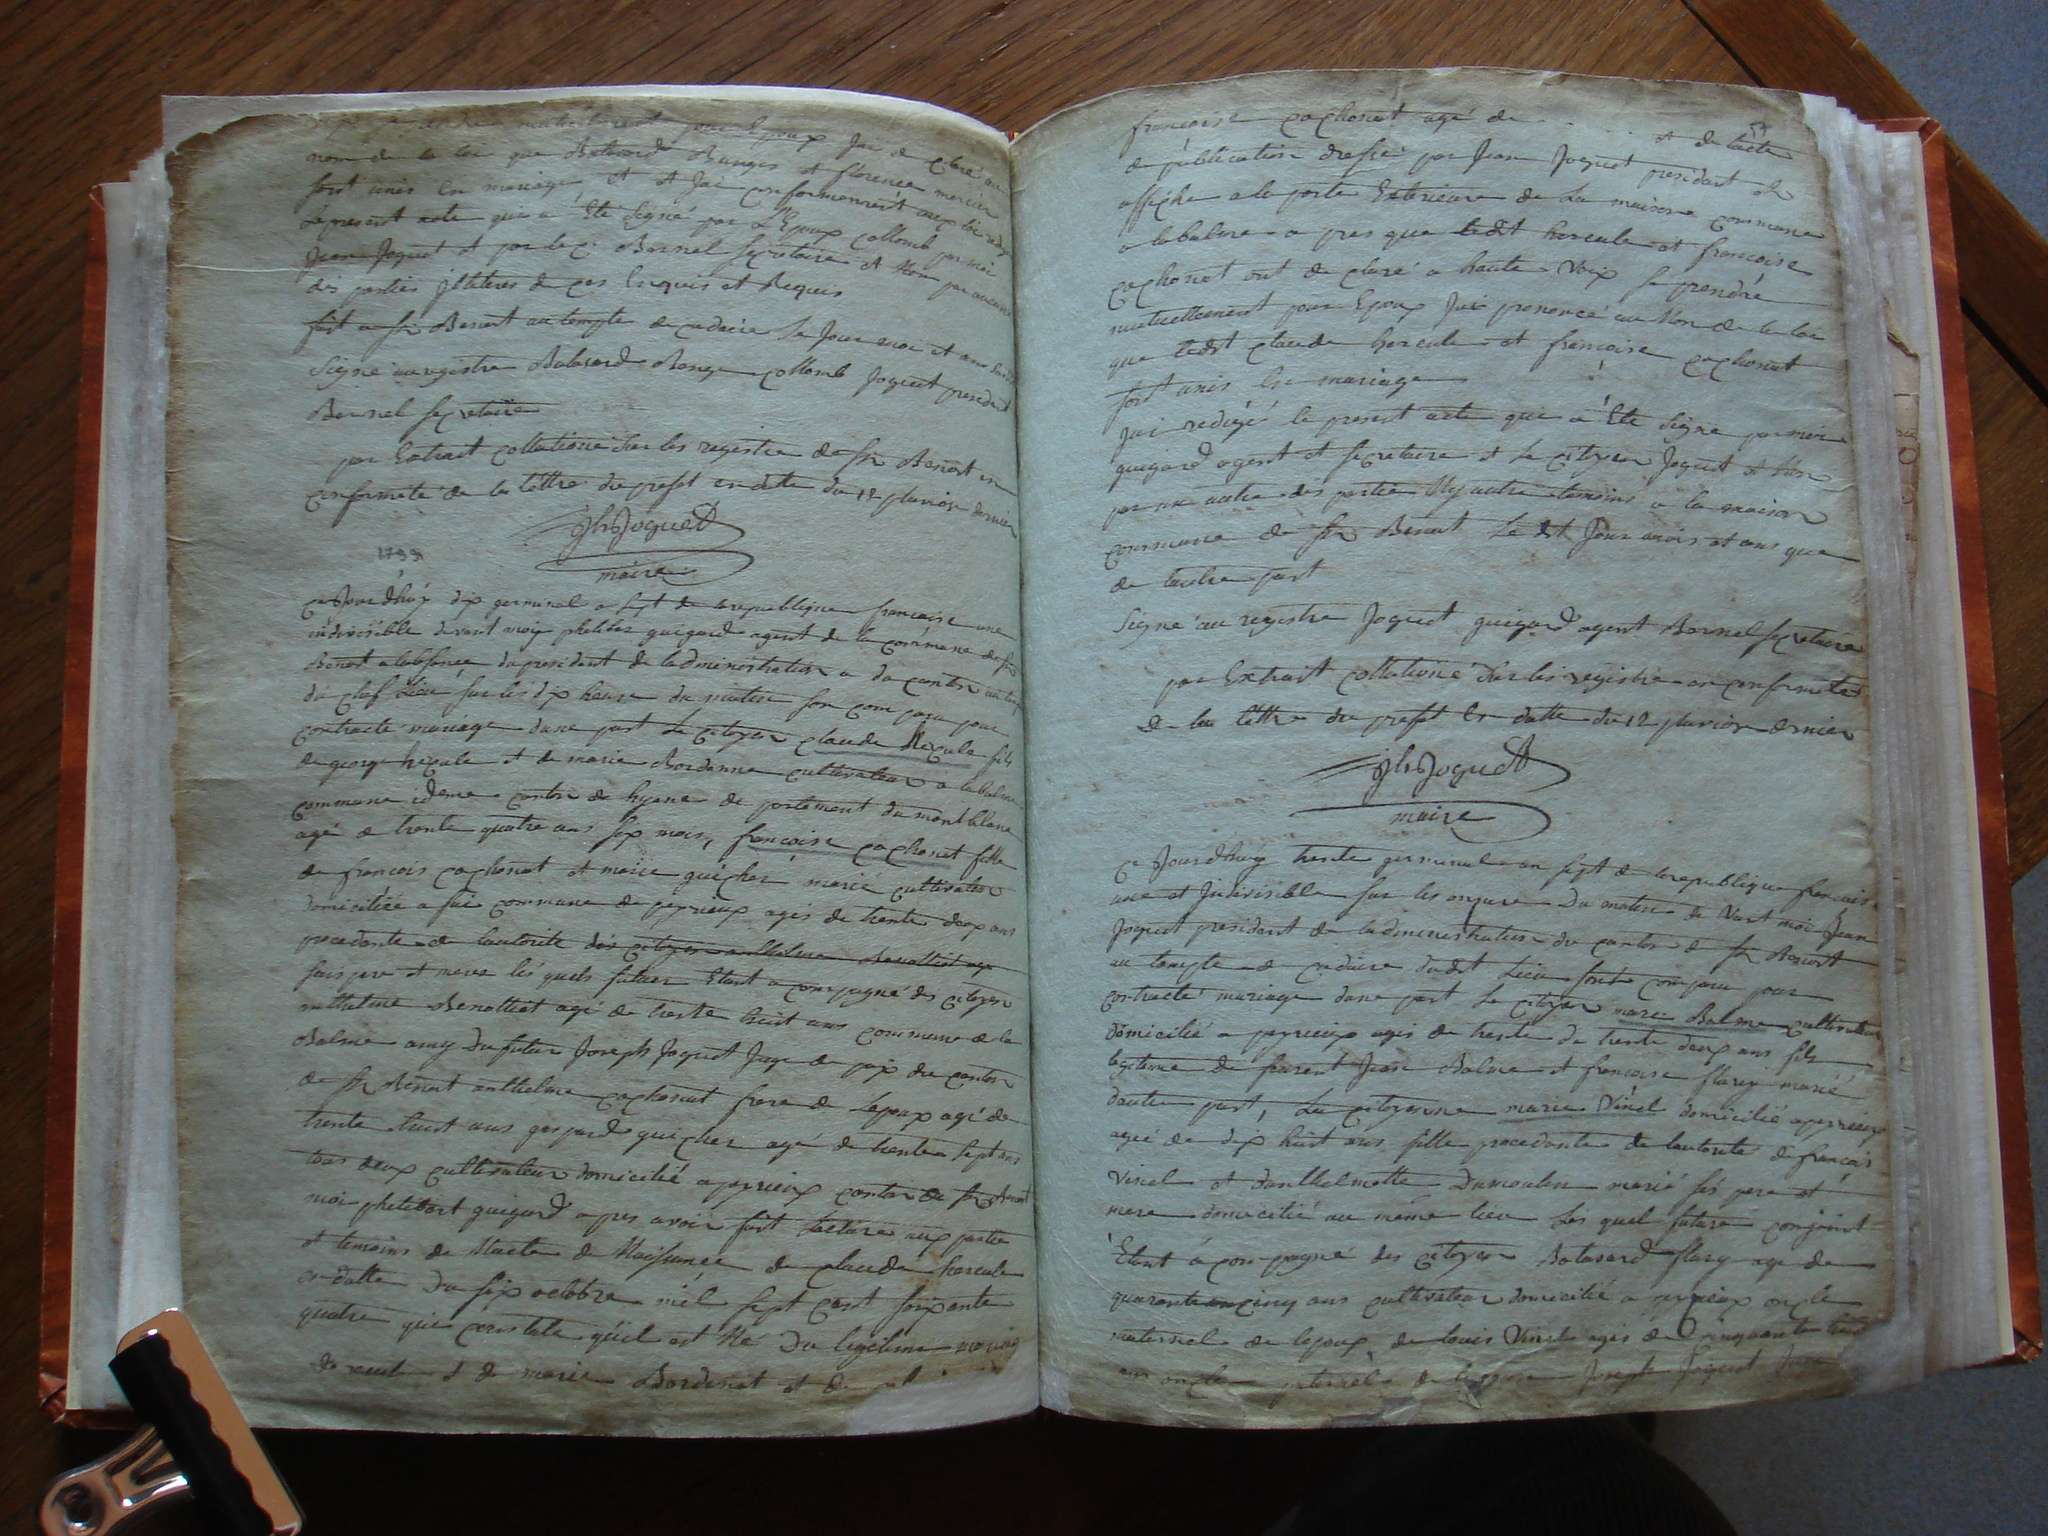 mutuellement pour Epoux Jai de claré au
nom de la loi que Batasard Banges et florence mercier
sont unis En mariage et Jai conformement aux loix redigé
le present acte qui a Eté Signé par L'Epoux collomb par moi
Jean Joquet et par le c. Bornel secretaire et Non par aucune
des parties illiteres de ces Enquis et Requis
fait a St Benoit au temple de cadaire Le Jour mois et an
Signé au registre Batasard Bange collomb Joquet president
Bornel secretaire
par Extrait collationé sur les registre de St Benoit en
conformeté de la lettre du prefet en date du 12 pluviose dernier
Jh Joquet
maire
1799
Ce Jourdhuy dix germinal a sept de la republique francaise une
indivisible devant moy philiber guigard agent de la commune de St
Benoit a labsence du president de ladministration a du canton au temple
du chef lieu sur les dix heure du matin son comparu pour
contracte mariage dune part le citoyen claude Hercule fils
de george hercule et de marie Bordanne cultivateur a la balme
commune ideme canton de hyenne de partement du montblanc
agé de trente quatre ans six mois, francoise cachonat fille
de francois cachonat et marie guicher marié cultivateur
domiciliée a fai commune de peyrieux agés de trente deux ans
procedante de lautorité des citoyen anthelme Benottiat age
fais pere et mere lés quels futur Etant a compagné dés citoyen
anthelme Benottiat agé de trente huit ans commune de la
Balme amy du futur Joseph Joquet Juge de paix du canton
de St Benoit anthelme cachonat frere de Lepoux agé de
trente huit ans gaspard guicher agé de trente sept ans
tous deux cultivateur domicilié a peyrieux canton de St Benoit
moi philibert guigard apres avoir fait lecture aux partie
et temoins de Nacte de Naissance de claude hercule
en datte du six octobre mil sept cent soixante
quatre qui constate qu'il est Né du legitime mariage
de et de marie Bordenat et de
francoise cachonat agé de . . . . et de lacte
57
de publication dressé par Jean Joquet president et
affiche a la porte Exterieure de La maison commune
a la balme a pres que ledt hercule et francoise
cachonat ont de claré a haute Voix se prendre
mutuellement pour Epoux Jai prononcé au Nom de la loi
que ledt claude hercule et francoise cachonat
sont unis En mariage
Jai redigé le present acte qui a Eté Signé par moi
guigard agent et secretaire et Le citoyen Joquet et Non
par une autre des partie Ny autre temoins a la maison
commune de St Benoit Le dt Jour mois et ans que
de lautre part
Signé au registre Joquet guigard agent Bornel secretaire
par Extrait collationé sur les registre en conformeté
de la lettre du prefet En datte du 12 pluviose dernier
Jh Joquet
maire
Ce Jourdhuy trente germinal an sept de la republique francaise
une et Indivisible sur les onzure du matin de Vant moi Jean
Joquet president de ladministration du canton de St Benoit
au temple de cadaire dudt Lieu sont comparu pour
contracté mariage dune part Le citoyen marc Balme cultivateur
domicilié a peyrieux agés de trente de trente deux ans fils
legitime de feurent Jean Balme et francoise flary marié
dautre part, La citoyenne marie Vinel domicilié a peyrieux
ageé de dix huit ans fille procedante de lautorité de francois
Vinel et danthelmette Dumoulin marié sés pere et
mere domicilié au même lieu Lés quel future conjoint
Etant á compagné des citoyen Batasard flary age de
quarante cinq ans cultivateur domicilié a peyrieux oncle
maternel de lepoux de louis Vinel agés de Cinquante trois
ans oncle paternel de lepouse Joseph Joquet Juge